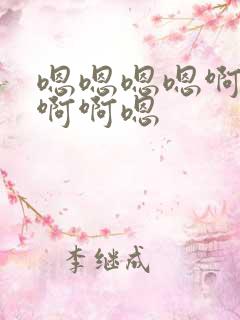 嗯嗯嗯嗯啊
啊啊嗯
李继成